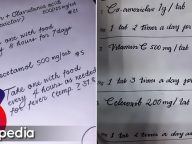 + Clavulanic acid
one with food
8 hours for 7days
cetamol 500 mg/tab
Take one with food
every 4 hours as needed
for fever (temp ≥ 37.8
pedia
Co-amoxiclav 1g / tab
1 tab 2 times a day
Vitamin C 500 mg / tab
1 tab 3 times a day for
Celecoxib 200 mg / tab
1 tab 2 times a day as